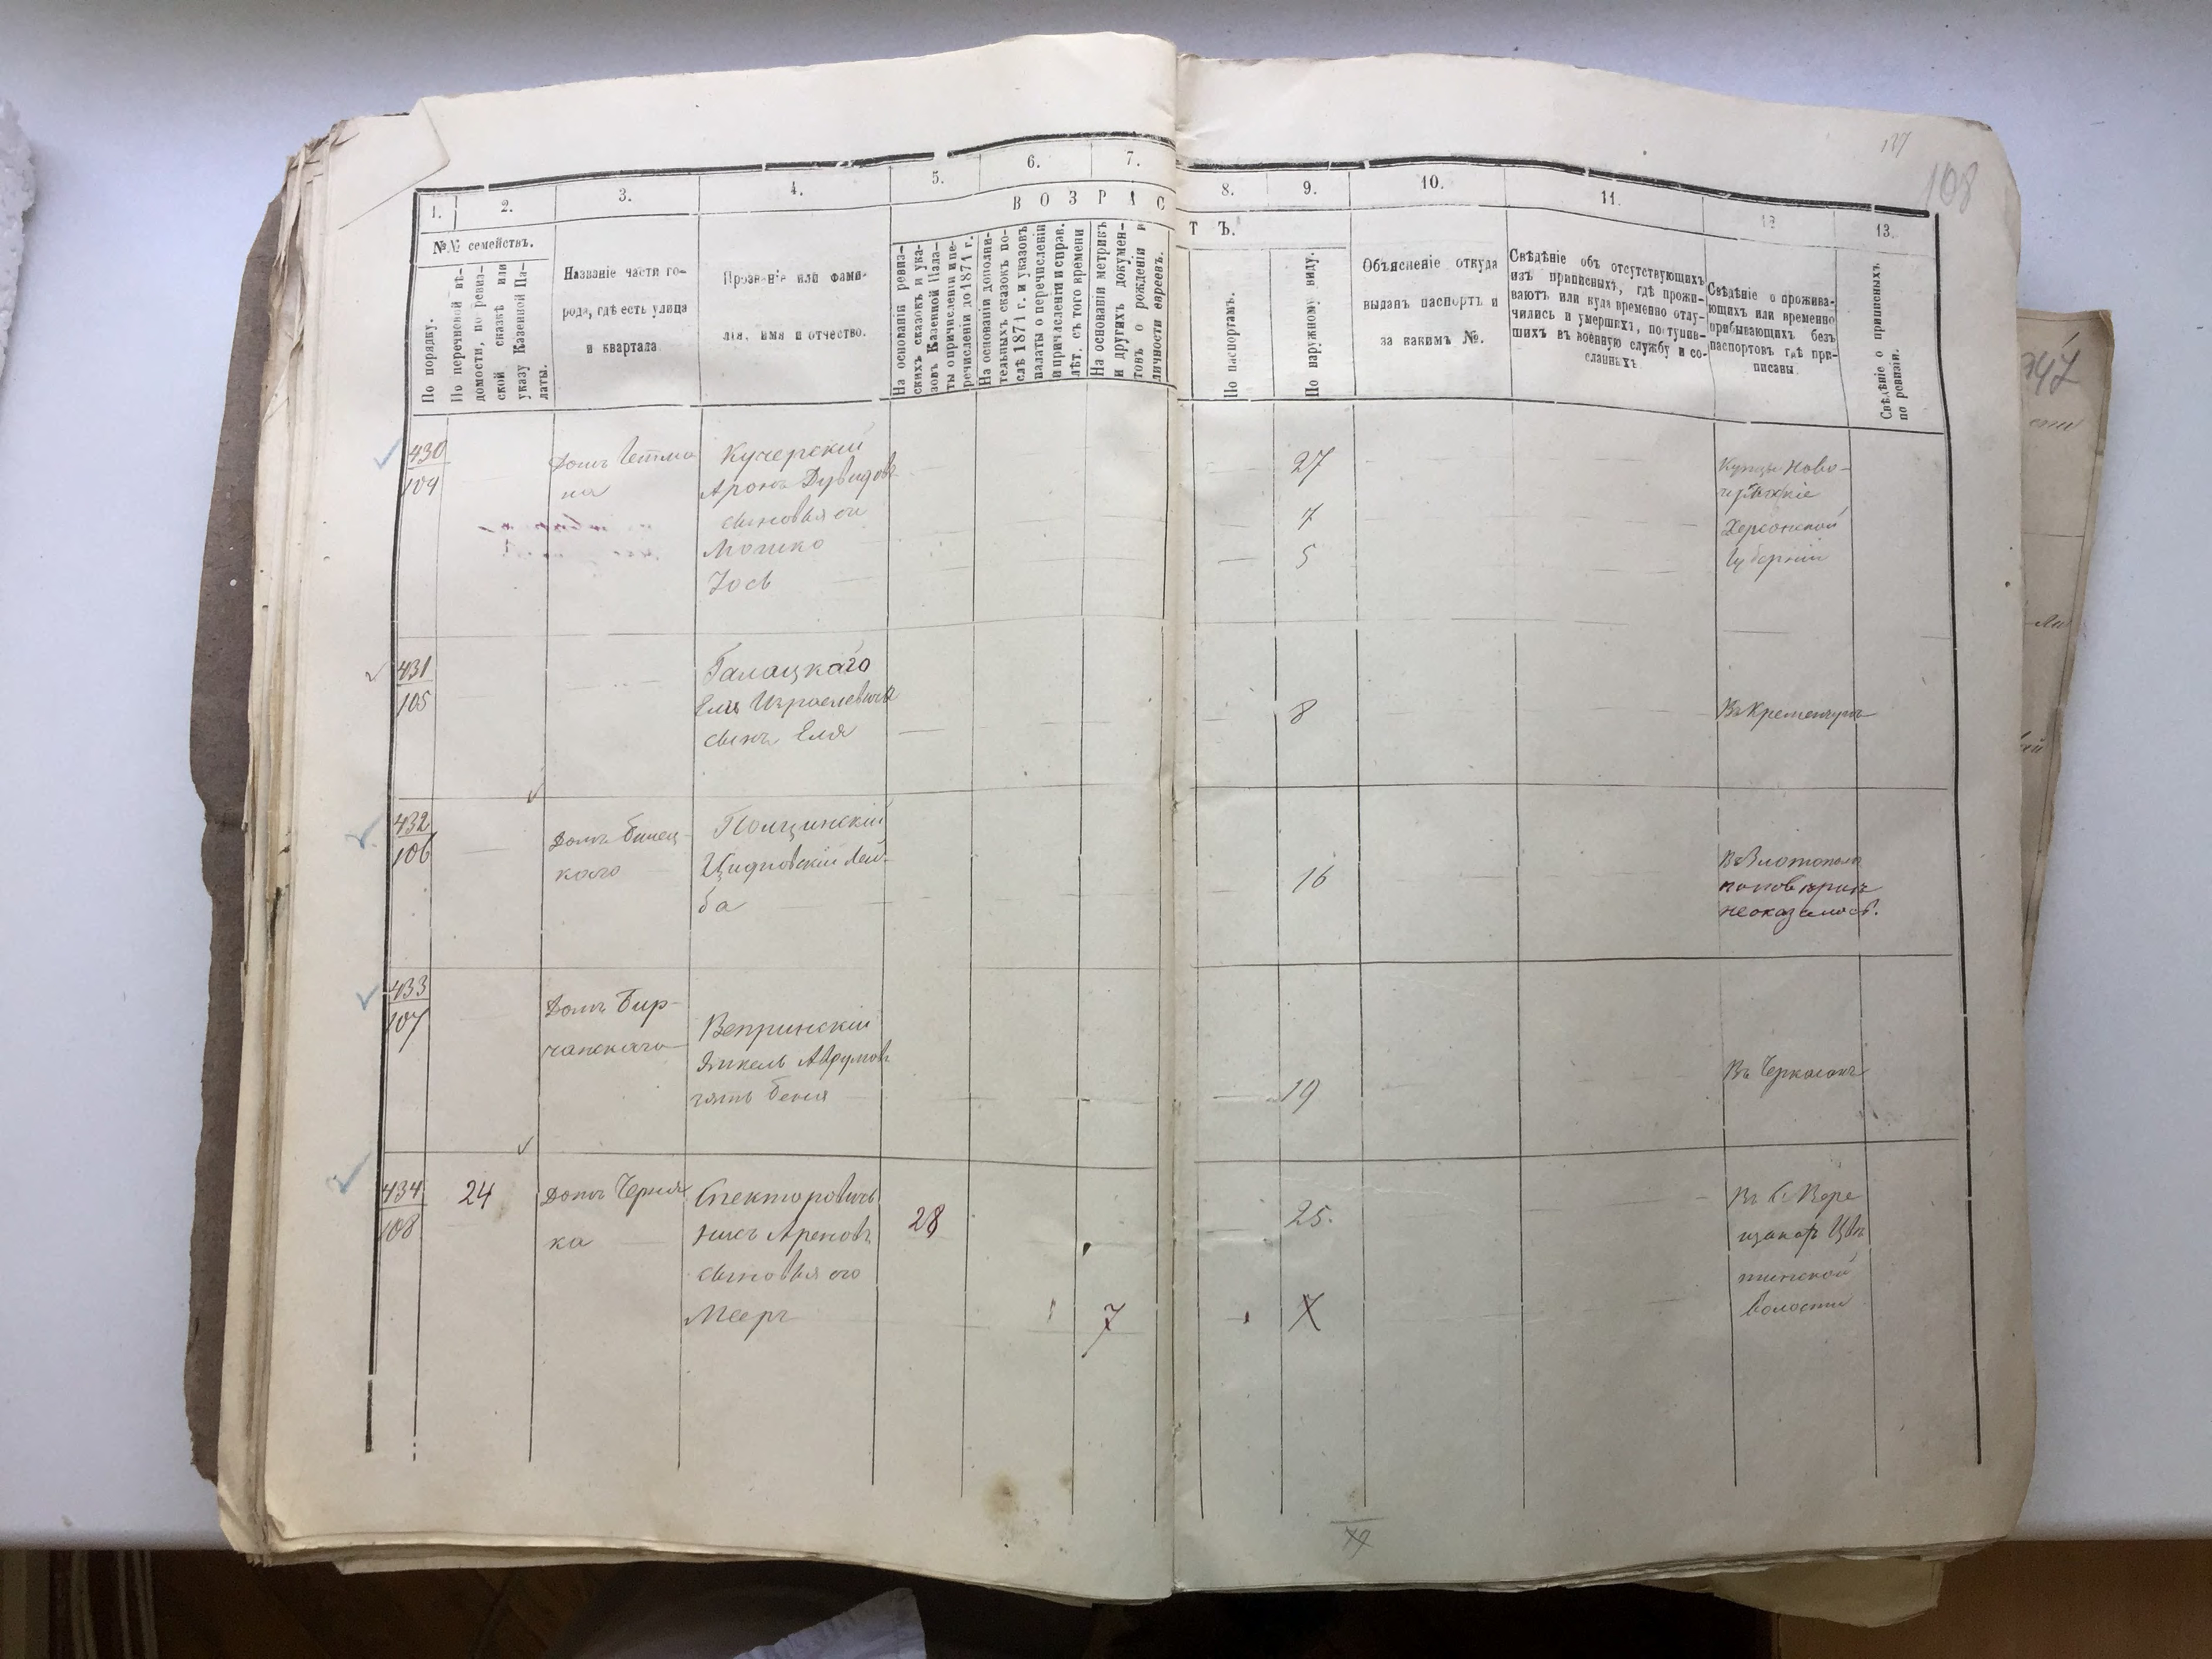 108
1.
2.
3.
4.
5.
6.
7.
8.
9.
10.
11.
12
13.
В О З Р А С
Т Ъ.
№№ семействъ.
По порядку.
По перечневой вѣ-
домости, по ревиз-
ской сказкѣ или
указу Казенной Па-
латы.
Названіе части го-
рода, гдѣ есть улица
и квартала
Прозваніе или фами-
лія, имя и отчество.
На основаніи ревиз-
скихъ сказокъ и ука-
зовъ Казенной Пала-
ты о причисленіи и пе-
речисленіи до 1874 г.
На основаніи дополни-
тельныхъ сказокъ по-
слѣ 1874 г. и указовъ
палаты о перечисленіи
и причисленіи и справ.
лѣт. съ того времени
На основаніи метрикъ
и другихъ докумен-
товъ о рожденіи и
личности евреевъ.
По паспортамъ.
По наружному виду.
Объясненіе откуда
выданъ паспортъ и
за какимъ №.
Свѣдѣніе объ отсутствующихъ
изъ приписныхъ, гдѣ прожи-
ваютъ или куда временно отлу-
чились и умершихъ, поступив-
шихъ въ военную службу и со-
сланныхъ
Свѣдѣніе о прожива-
ющихъ или временно
прибывающихъ безъ
паспортовъ гдѣ при-
писаны
Свѣдѣніе о приписныхъ
по ревизіи.
430
104
Домъ Гетма
на
Кучерскій
Аронъ Дувидовъ
сыновья его
Мошко
Іось
27
7
5
Купцы Ново-
Херсонской
Губерніи
431
105
Галацкаго
Еля Израелевича
сынъ Еля
8
Въ Кременчугъ
432
106
Домъ Билец-
каго
Лей-
ба
16
Въ Златополѣ
неоказалось.
433
107
Домъ Бир-
чанскаго
Вепринскій
Янкель Аврумовъ
зять Беня
19
Въ Черкасахъ
434
108
24
Домъ Черня
ка
Спекторовичъ
Ареновъ
сыновья его
Мееръ
28
7
25.
Въ С. Вере
волости